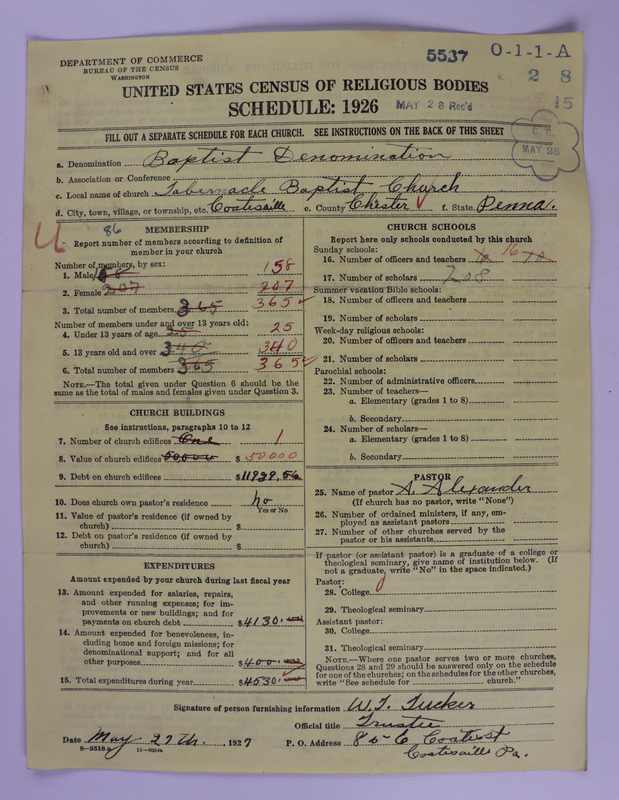 DEPARTMENT OF COMMERCE
BUREAU OF THE CENSUS
WASHINGTON
5537
O-1-1-A
2 8
15
UNITED STATES CENSUS OF RELIGIOUS BODIES
SCHEDULE: 1926
MAY 28 Rec'd
FILL OUT A SEPARATE SCHEDULE FOR EACH CHURCH. SEE INSTRUCTIONS ON THE BACK OF THIS SHEET
MAY 28
a. Denomination Baptist Denomination
b. Association or Conference
c. Local name of church Tabernacle Baptist Church
d. City, town, village, or township, etc. Coatesville e. County Chester f. State Penna.
86
MEMBERSHIP
Report number of members according to definition of
member in your church
Number of members, by sex:
1. Male 158
2. Female 207 207
3. Total number of members 365 365
Number of members under and over 13 years old:
4. Under 13 years of age 25 25
5. 13 years old and over 340 340
6. Total number of members 365 365
NOTE.—The total given under Question 6 should be the
same as the total of males and females given under Question 3.
CHURCH BUILDINGS
See instructions, paragraphs 10 to 12
7. Number of church edifices One 1
8. Value of church edifices 50,000 $ 50000
9. Debt on church edifices $ 11929.56
10. Does church own pastor's residence No
Yes or No
11. Value of pastor's residence (if owned by
church) $
12. Debt on pastor's residence (if owned by
church) $
EXPENDITURES
Amount expended by your church during last fiscal year
13. Amount expended for salaries, repairs,
and other running expenses; for im-
provements or new buildings; and for
payments on church debt $ 4130.
14. Amount expended for benevolences, in-
cluding home and foreign missions; for
denominational support; and for all
other purposes $ 400.
15. Total expenditures during year $ 4530.
CHURCH SCHOOLS
Report here only schools conducted by this church
Sunday schools:
16. Number of officers and teachers 16
17. Number of scholars 208
Summer vacation Bible schools:
18. Number of officers and teachers
19. Number of scholars
Week-day religious schools:
20. Number of officers and teachers
21. Number of scholars
Parochial schools:
22. Number of administrative officers
23. Number of teachers—
a. Elementary (grades 1 to 8)
b. Secondary
24. Number of scholars—
a. Elementary (grades 1 to 8)
b. Secondary
PASTOR
25. Name of pastor A. Alexander
(If church has no pastor, write "None")
26. Number of ordained ministers, if any, em-
ployed as assistant pastors
27. Number of other churches served by the
pastor or his assistants
If pastor (or assistant pastor) is a graduate of a college or
theological seminary, give name of institution below. (If
not a graduate, write "No" in the space indicated.)
Pastor:
28. College
29. Theological seminary
Assistant pastor:
30. College
31. Theological seminary
NOTE.—Where one pastor serves two or more churches,
Questions 28 and 29 should be answered only on the schedule
for one of the churches; on the schedules for the other churches,
write "See schedule for church."
Signature of person furnishing information W. T. Tucker
Official title Trustee
Date May 27th, 1927 P. O. Address 856 Coates St
8—5518a 11—9664a Coatesville Pa.